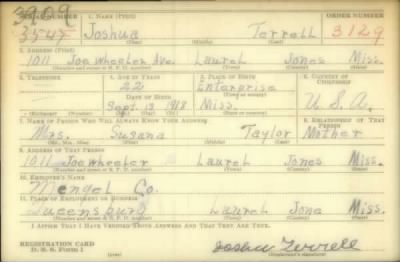 3909
SERIAL NUMBER 1. NAME (Print) ORDER NUMBER
3547 Joshua Terrell 3129
(First) (Middle) (Last)
2. ADDRESS (Print)
1011 Joe Wheeler Ave. Laurel Jones Miss.
(Number and street or R. F. D. number) (Town) (County) (State)
3. TELEPHONE 4. AGE IN YEARS 5. PLACE OF BIRTH 6. COUNTRY OF CITIZENSHIP
22 Enterprise
DATE OF BIRTH (Town or county)
Sept. 13 1918 Miss. U.S.A.
(Exchange) (Number) (Mo.) (Day) (Yr.) (State or country)
7. NAME OF PERSON WHO WILL ALWAYS KNOW YOUR ADDRESS 8. RELATIONSHIP OF THAT PERSON
Mrs. Susana Taylor Mother
(Mr., Mrs., Miss) (First) (Middle) (Last)
9. ADDRESS OF THAT PERSON
1011 Joe wheeler Laurel Jones Miss.
(Number and street or R. F. D. number) (Town) (County) (State)
10. EMPLOYER'S NAME
Mengel Co.
11. PLACE OF EMPLOYMENT OR BUSINESS
Queensburg Laurel Jone Miss.
(Number and street or R. F. D. number) (Town) (County) (State)
I AFFIRM THAT I HAVE VERIFIED ABOVE ANSWERS AND THAT THEY ARE TRUE.
REGISTRATION CARD
D. S. S. Form 1 Joshua Terrell
(over) (Registrant's signature)